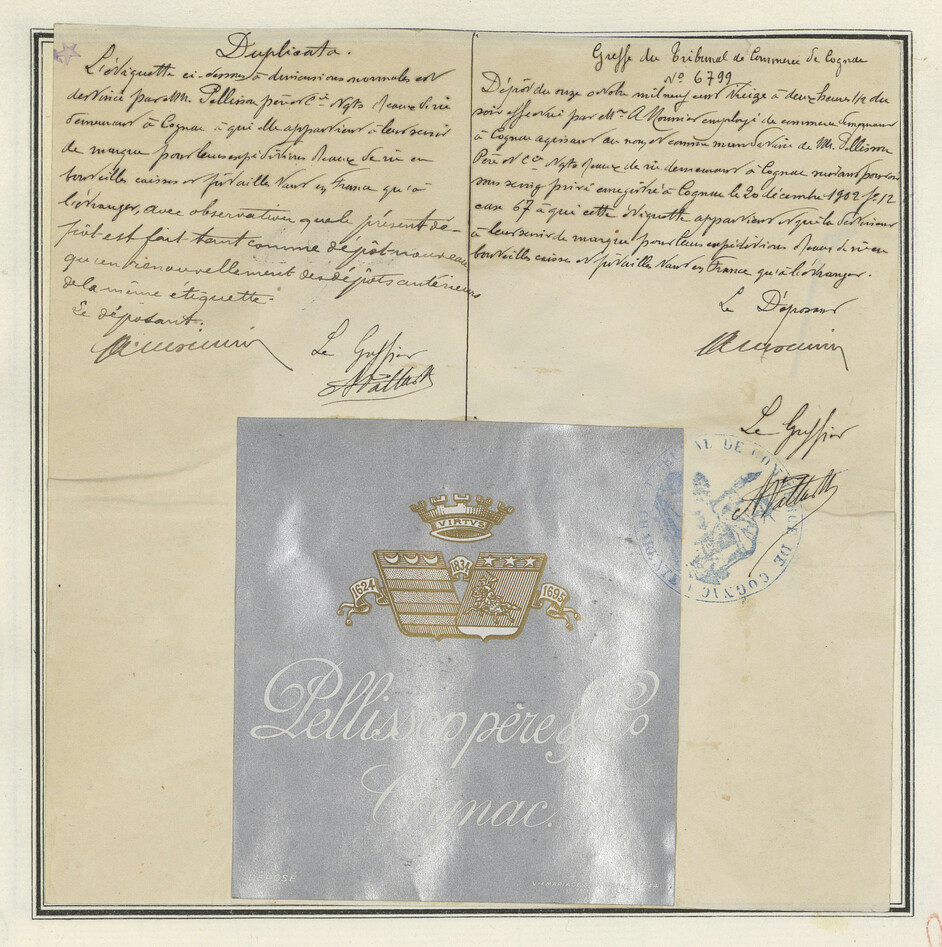 Duplicata.
L'étiquette ci-dessous à dimensions normales est
destinée par MM. Pellisson père & Cie Ngts d'eaux de vie
demeurant à Cognac à qui elle appartient à leur servir
de marque pour leurs expéditions d'eaux de vie en
bouteilles caisses et futailles tant en France qu'à
l'étranger, avec observation que le présent dé-
pôt est fait tant comme dépôt nouveau
qu'en renouvellement des dépôts antérieurs
de la même étiquette.
Le déposant.
Le Greffier
Greffe du Tribunal de Commerce de Cognac
No 6799
Dépôt du onze octobre mil neuf cent treize à deux heures 1/2 du
soir effectué par Mr A Mounier employé de commerce demeurant
à Cognac agissant au nom et comme mandataire de MM. Pellisson
Père & Cie Ngts d'eaux de vie demeurant à Cognac suivant pouvoir
sous seing privé enregistré à Cognac le 20 décembre 1902 fo 12
case 67 à qui cette étiquette appartient et qui la destinent
à leur servir de marque pour leurs expéditions d'eaux de vie en
bouteilles caisses et futailles tant en France qu'à l'étranger.
Le Déposant
Le Greffier
TRIBUNAL DE COMMERCE DE COGNAC
VIRTVS
1624 1834 1695
Pellisson père & Co
Cognac.
DÉPOSÉ